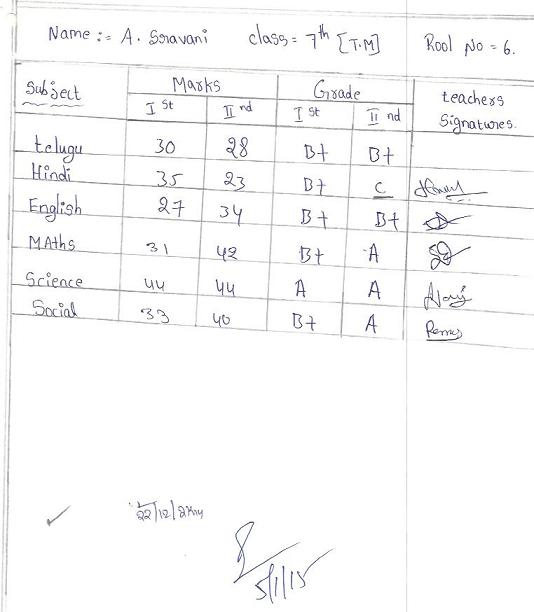 Name :- A. Sravani class = 7th [T.M] Rool No = 6.
Subject Marks Grade teachers Signatures.
I st II nd I st II nd
telugu 30 28 B+ B+
Hindi 35 23 B+ C
English 27 34 B+ B+
MAths 31 42 B+ A
Science 44 44 A A
Social 33 40 B+ A
22/12/
5/1/15